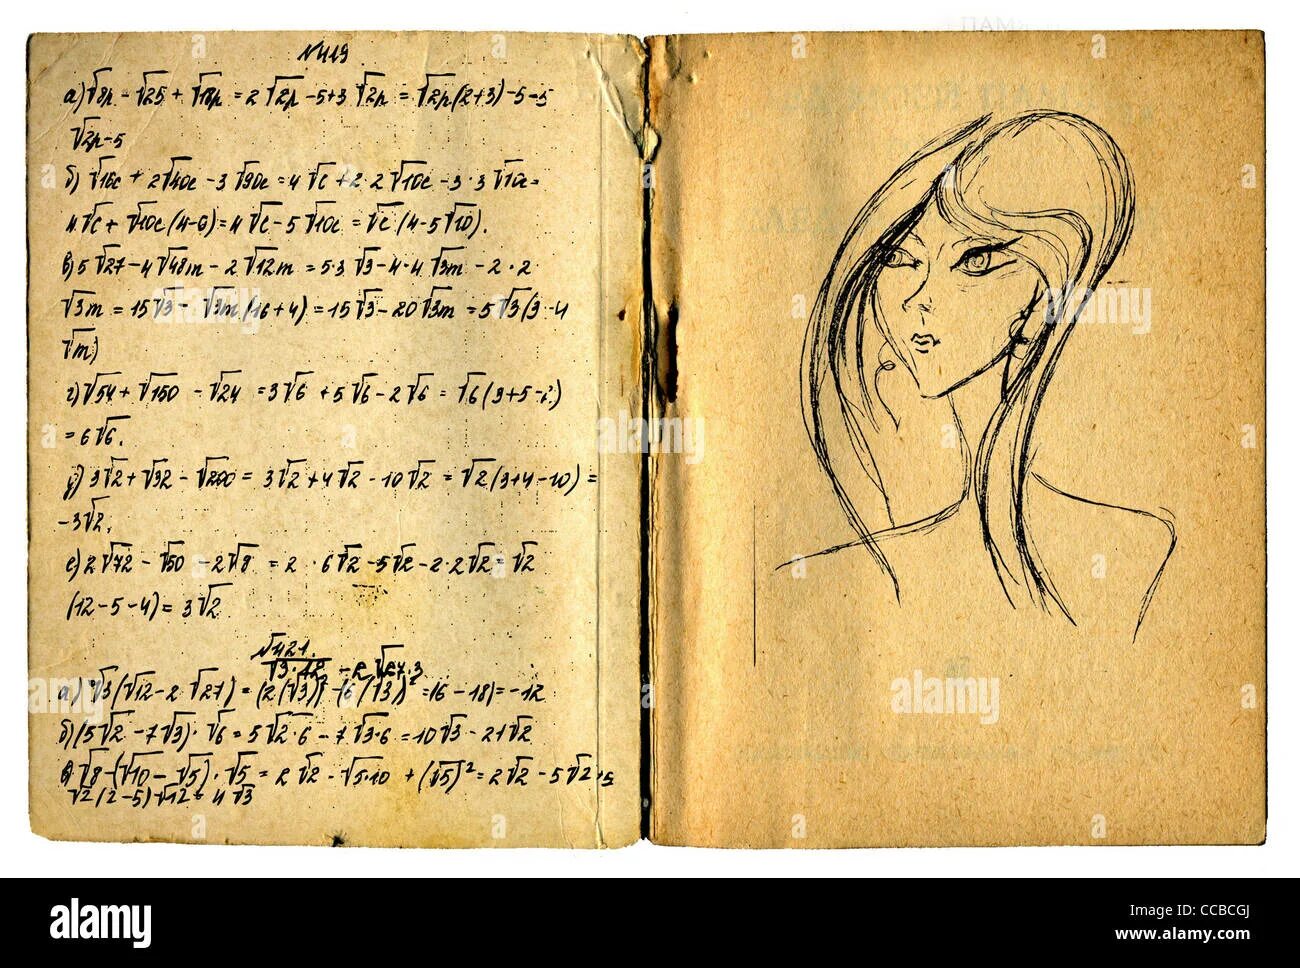 №419
а)√8p - √25 + √18p = 2√2p - 5+3√2p = √2p(2+3)-5-5
√2p-5
б)√16c + 2√40c - 3√90c = 4√c + 2·2√10c - 3·3√10c=
4√c + √10c(4-9)=4√c - 5√10c = √c(4-5√10).
в)5√27-4√48m - 2√12m = 5·3√3-4·4√3m - 2·2
√3m = 15√3 - √3m(16+4)=15√3-20√3m = 5√3(3-4
√m)
г)√54+√150 - √24 = 3√6 + 5√6 - 2√6 = √6(3+5-2)
= 6√6.
д)3√2+√32 - √200 = 3√2+4√2 - 10√2 = √2(3+4-10)=
-3√2.
е)2√72 - √50 - 2√8 = 2 · 6√2-5√2-2·2√2=√2
(12-5-4)=3√2
№421.
√3·12 - 2√27·3
а)√3(√12-2√27) = (2(√3)² - (6(√3)² = (6-18)=-12
б)(5√2 - 7√3)·√6=5√2·6 - 7√3·6=10√3 - 21√2
в)√8-(√10-√5)·√5 = 2√2 - √5·10 + (√5)²=2√2 - 5√2+5
√2(2-5)
√12 = 4√3
alamy
alamy
alamy
Image ID: CCBCGJ
www.alamy.com